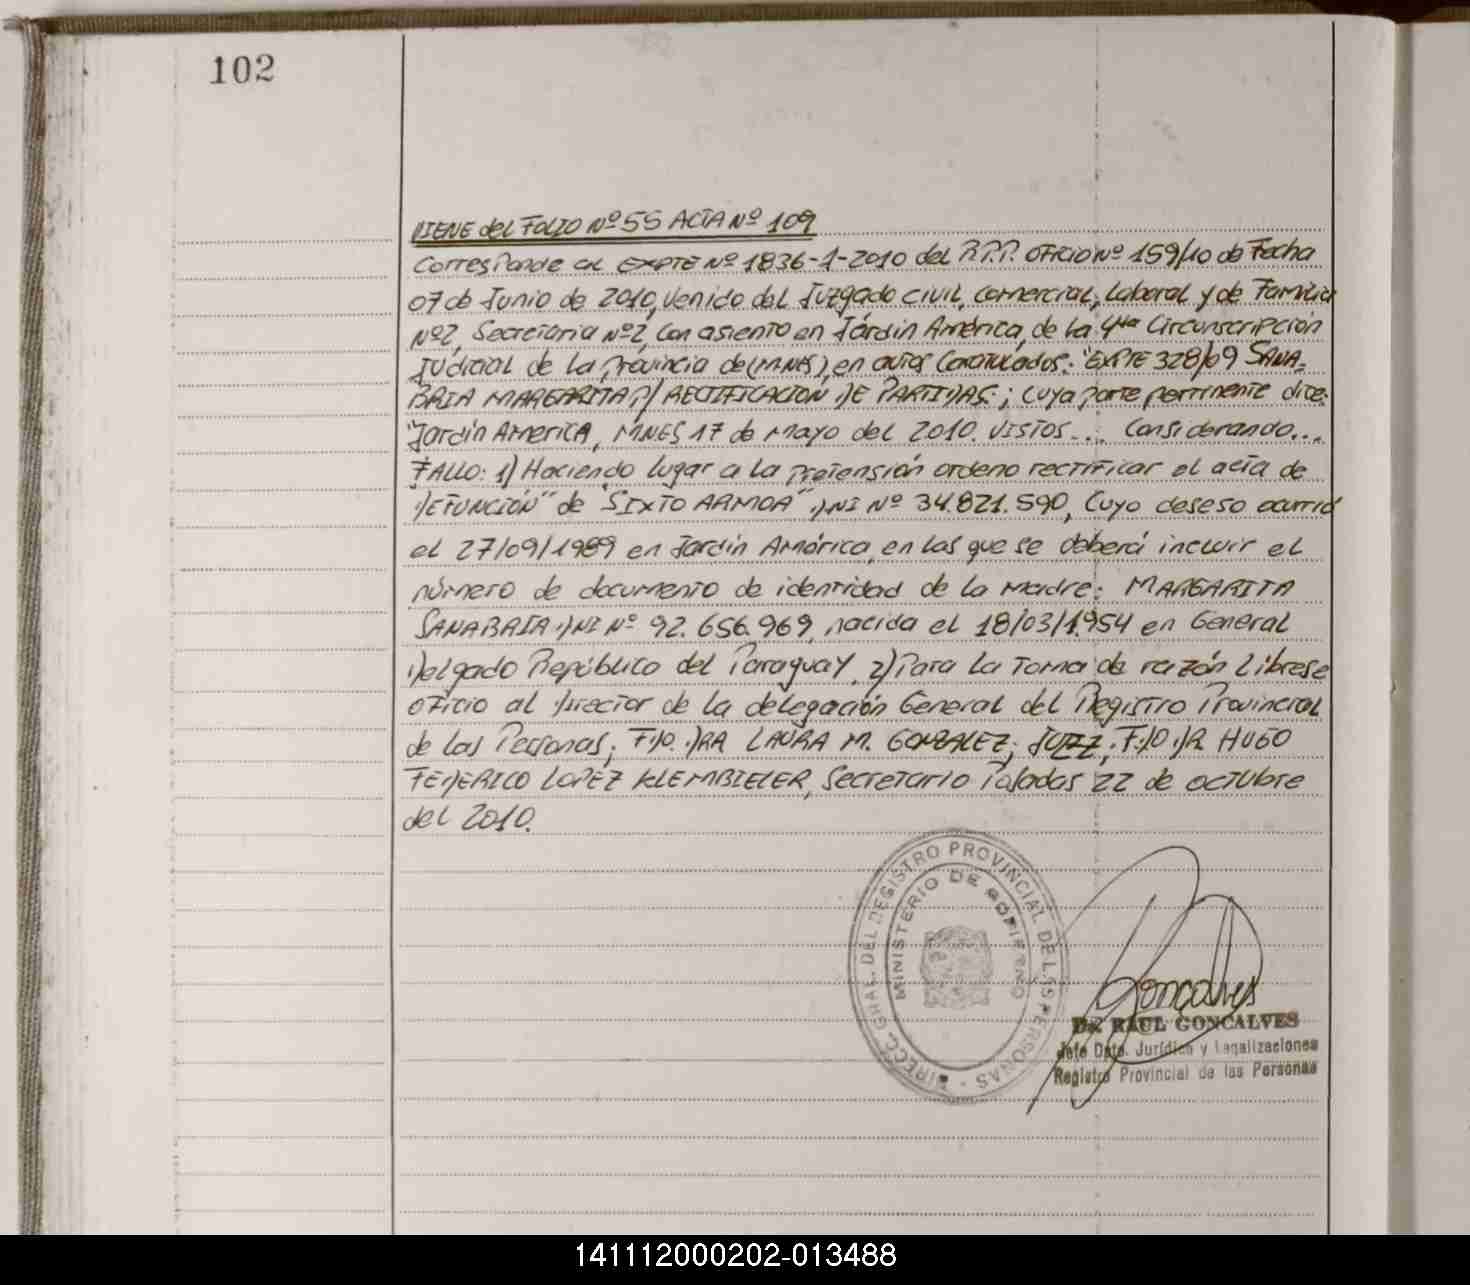 102
VIENE del FOLIO Nº 55 ACTA Nº 109
Corresponde al EXPTE Nº 1836-1-2010 del R.P.P. OFICIO Nº 159/10 de Fecha
07 de Junio de 2010, Venido del Juzgado Civil, Comercial, Laboral y de Familia
Nº2, Secretaria Nº2, con asiento en Járdin América, de la 4ta Circunscripción
Judicial de la Provincia de (MNES), en autos Caratulados: "EXPTE 328/09 SANA-
BRIA MARGARITA P/ RECTIFICACION DE PARTIDAS; Cuya parte pertinente dice:
"Jardín America, MNES 17 de Mayo del 2010. VISTOS... Considerando...
FALLO: 1) Haciendo lugar a la pretensión ordeno rectificar el acta de
DEFUNCIÓN" de "SIXTO ARMOA" DNI Nº 34.821.590, Cuyo deseso ocurrió
el 27/09/1989 en Jardín América, en las que se deberá incluir el
número de documento de identidad de la Madre: MARGARITA
SANABRIA DNI Nº 92.656.969, nacida el 18/03/1954 en General
Delgado República del Paraguay. 2) Para la Toma de razón Librese
oficio al Director de la delegación General del Registro Provincial
de las Personas; F:DO. DRA LAURA M. GONZALEZ; JUEZ; F:DO DR HUGO
FEDERICO LOPEZ KLEMBIELER, Secretario Posadas 22 de octubre
del 2010.
DIRECC. GRAL. DEL REGISTRO PROVINCIAL DE LAS PERSONAS
MINISTERIO DE GOBIERNO
Goncalves
Dr. RAUL GONCALVES
Jefe Dpto. Jurídico y Legalizaciones
Registro Provincial de las Personas
141112000202-013488